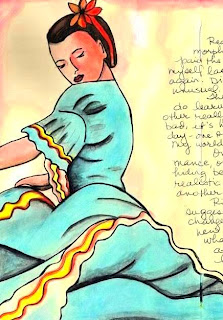 Rea
morph
paid the
myself las
again. Di
unusual
do lear
other reall
bad, it's
day - one
my world
mance, o
hiding be
realistic
another
R
sugges
change
new
whe
a